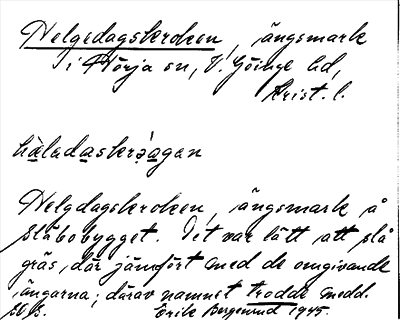 Helgedagskroken, ängsmark
i Hörja sn, V. Göinge hd,
Krist. l.
häladaskrågan
Helgdagskroken, ängsmark å
Slåbobygget. Det var lätt att slå
gräs, där jämfört med de omgivande
ängarna; därav namnet trodde medd.
Erik Bergenrud 1945.